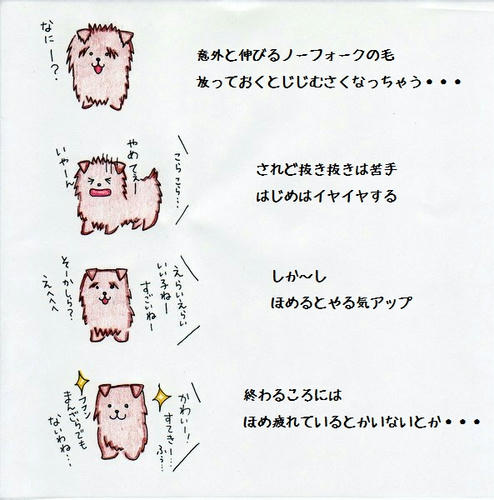 なにー？
意外と伸びるノーフォークの毛
放っておくとじじむさくなっちゃう・・・
いやーん
やめてぇー
こらこら…
されど抜き抜きは苦手
はじめはイヤイヤする
そーかしら？
えへへへ
えらいえらい
いい子ねー
すごいねー
しか～し
ほめるとやる気アップ
フフン
まんざらでも
ないわね…
かわいー！
すてきー…
ふぅ…
終わるころには
ほめ疲れているとかいないとか・・・